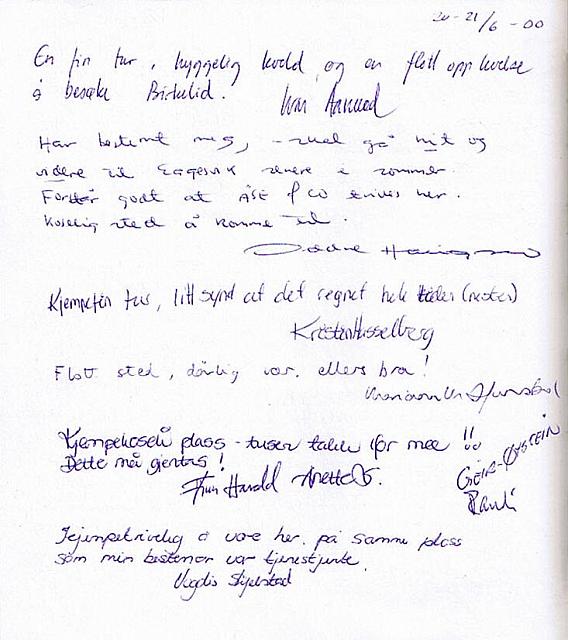 20-21/6-00
En fin tur, hyggelig kveld, og en flott opplevelse
å besøke Birkelid.
Har bestemt meg, - skal gå hit og
videre til Eggesvik senere i sommer.
Forstår godt at ÅSE & CO trives her.
Koselig sted å komme til.
Kjempefin tur, litt synd at det regnet hele tiden (nesten)
Kristin Hasselberg
Flott sted, dårlig vær, ellers bra!
Kjempekoselig plass - tusen takk for mæ!!
Dette må gjentas!
Finn Harald Anette
GEIR-ØYSTEIN
Kjempetrivelig å være her, på samme plass
som min bestemor var tjenestjente.
Vigdis